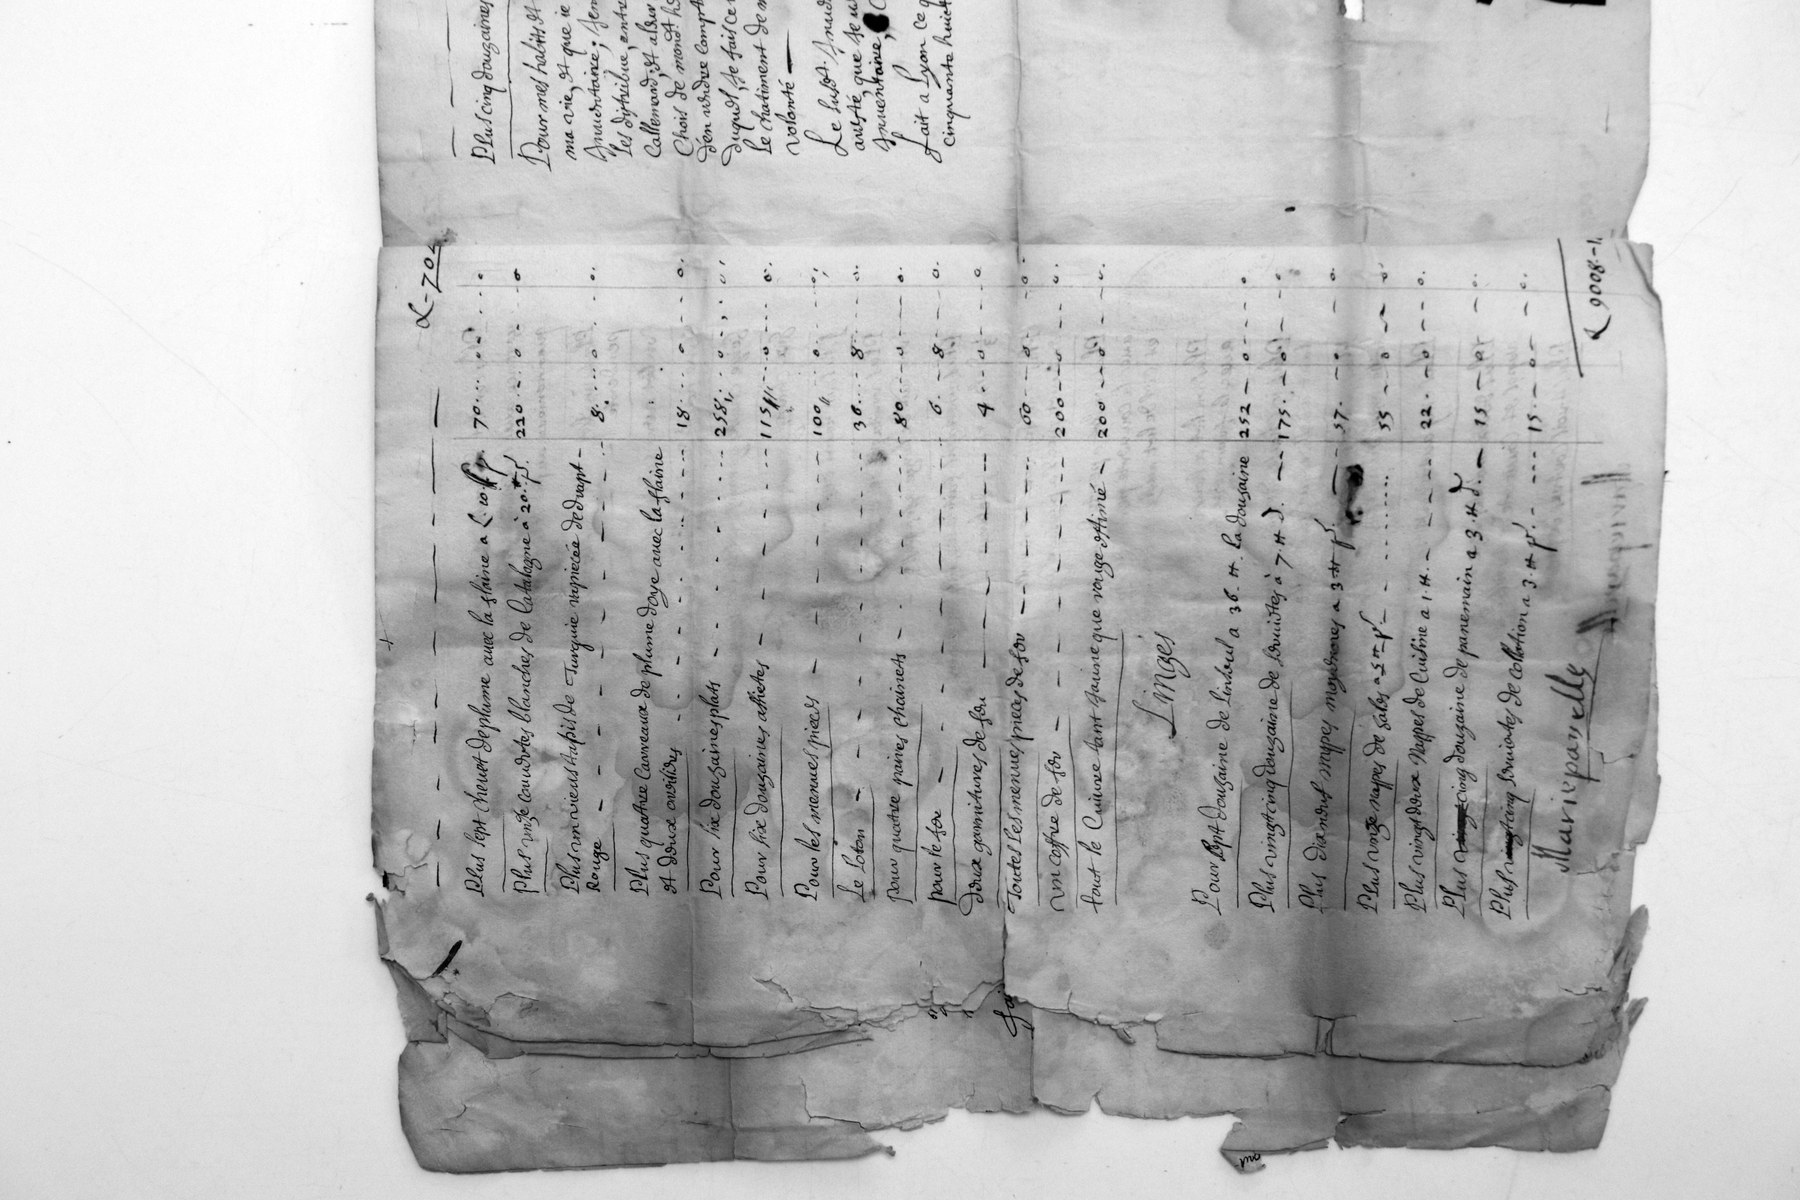 £ - 704
Plus sept chevet de plume avec la flaine a £. 10 pp. 70 .... 0 .... 0
Plus unse couvertes blanches de Catalogne à 20 # p.r 220 .. 0 .. 0
Plus un vieux tapis de Turquie rapiecée de drapt
Rouge 8. .... 0 .. 0.
Plus quatre Carreaux de plume d'oye avec la flaine
et deux oreilliers 18. ... 0 ... 0.
Pour six douzaines plats 258. .. 0 .. 0
Pour six douzaines assietes 115 .. 0 ... 0.
Pour les menues pieces 100 .. 0 .... 0
Le loton 36 ... 8 ... 0.
pour quatre paires chainets 80 ... 0 ... 0.
pour le fer 6. .. 8 ... 0.
deux garnitures de feu 4 .. 0 ... 0
Toutes les menues pieces de fer 60 .. 0 .. 0.
un coffre de fer 200 .. 0 .. 0.
tout le Cuivre tant jaune que rouge estimé 200 .. 0 .. 0.
Linges
Pour sept dousaine de linseul a 36. #. la dousaine 252 - 0 - - - 0
Plus vingt cinq douzaine de serviettes à 7. # d. 175. - 0 - - 0.
Plus dixneuf napes moyennes a 3 # p.r 57. - 0 - - 0.
Plus unze napes de sales a 5 # p.r 55 - 0 - - 0
Plus vingt deux Nappes de Cuisine a 1 #. 22. - 0 - - 0.
Plus cinq dousaine de panemain a 3. # d. 15 - 0 - - 0.
Plus cinq serviettes de collation a 3. # p.r 15. - 0 - - 0.
Marie pavelle
£ 9008-1
Plus cinq douzaines
Pour mes habits et
ma vie, et que je
les distribue, entre
Callemand, et aleur
Chois de mond. he
d'en rendre compt
duquel, se fais ce
le chatiment de m
volonté
Le susd. Inud
arresté, que se u
Inventaire,
Fait a Lyon ce q
cinquante huict